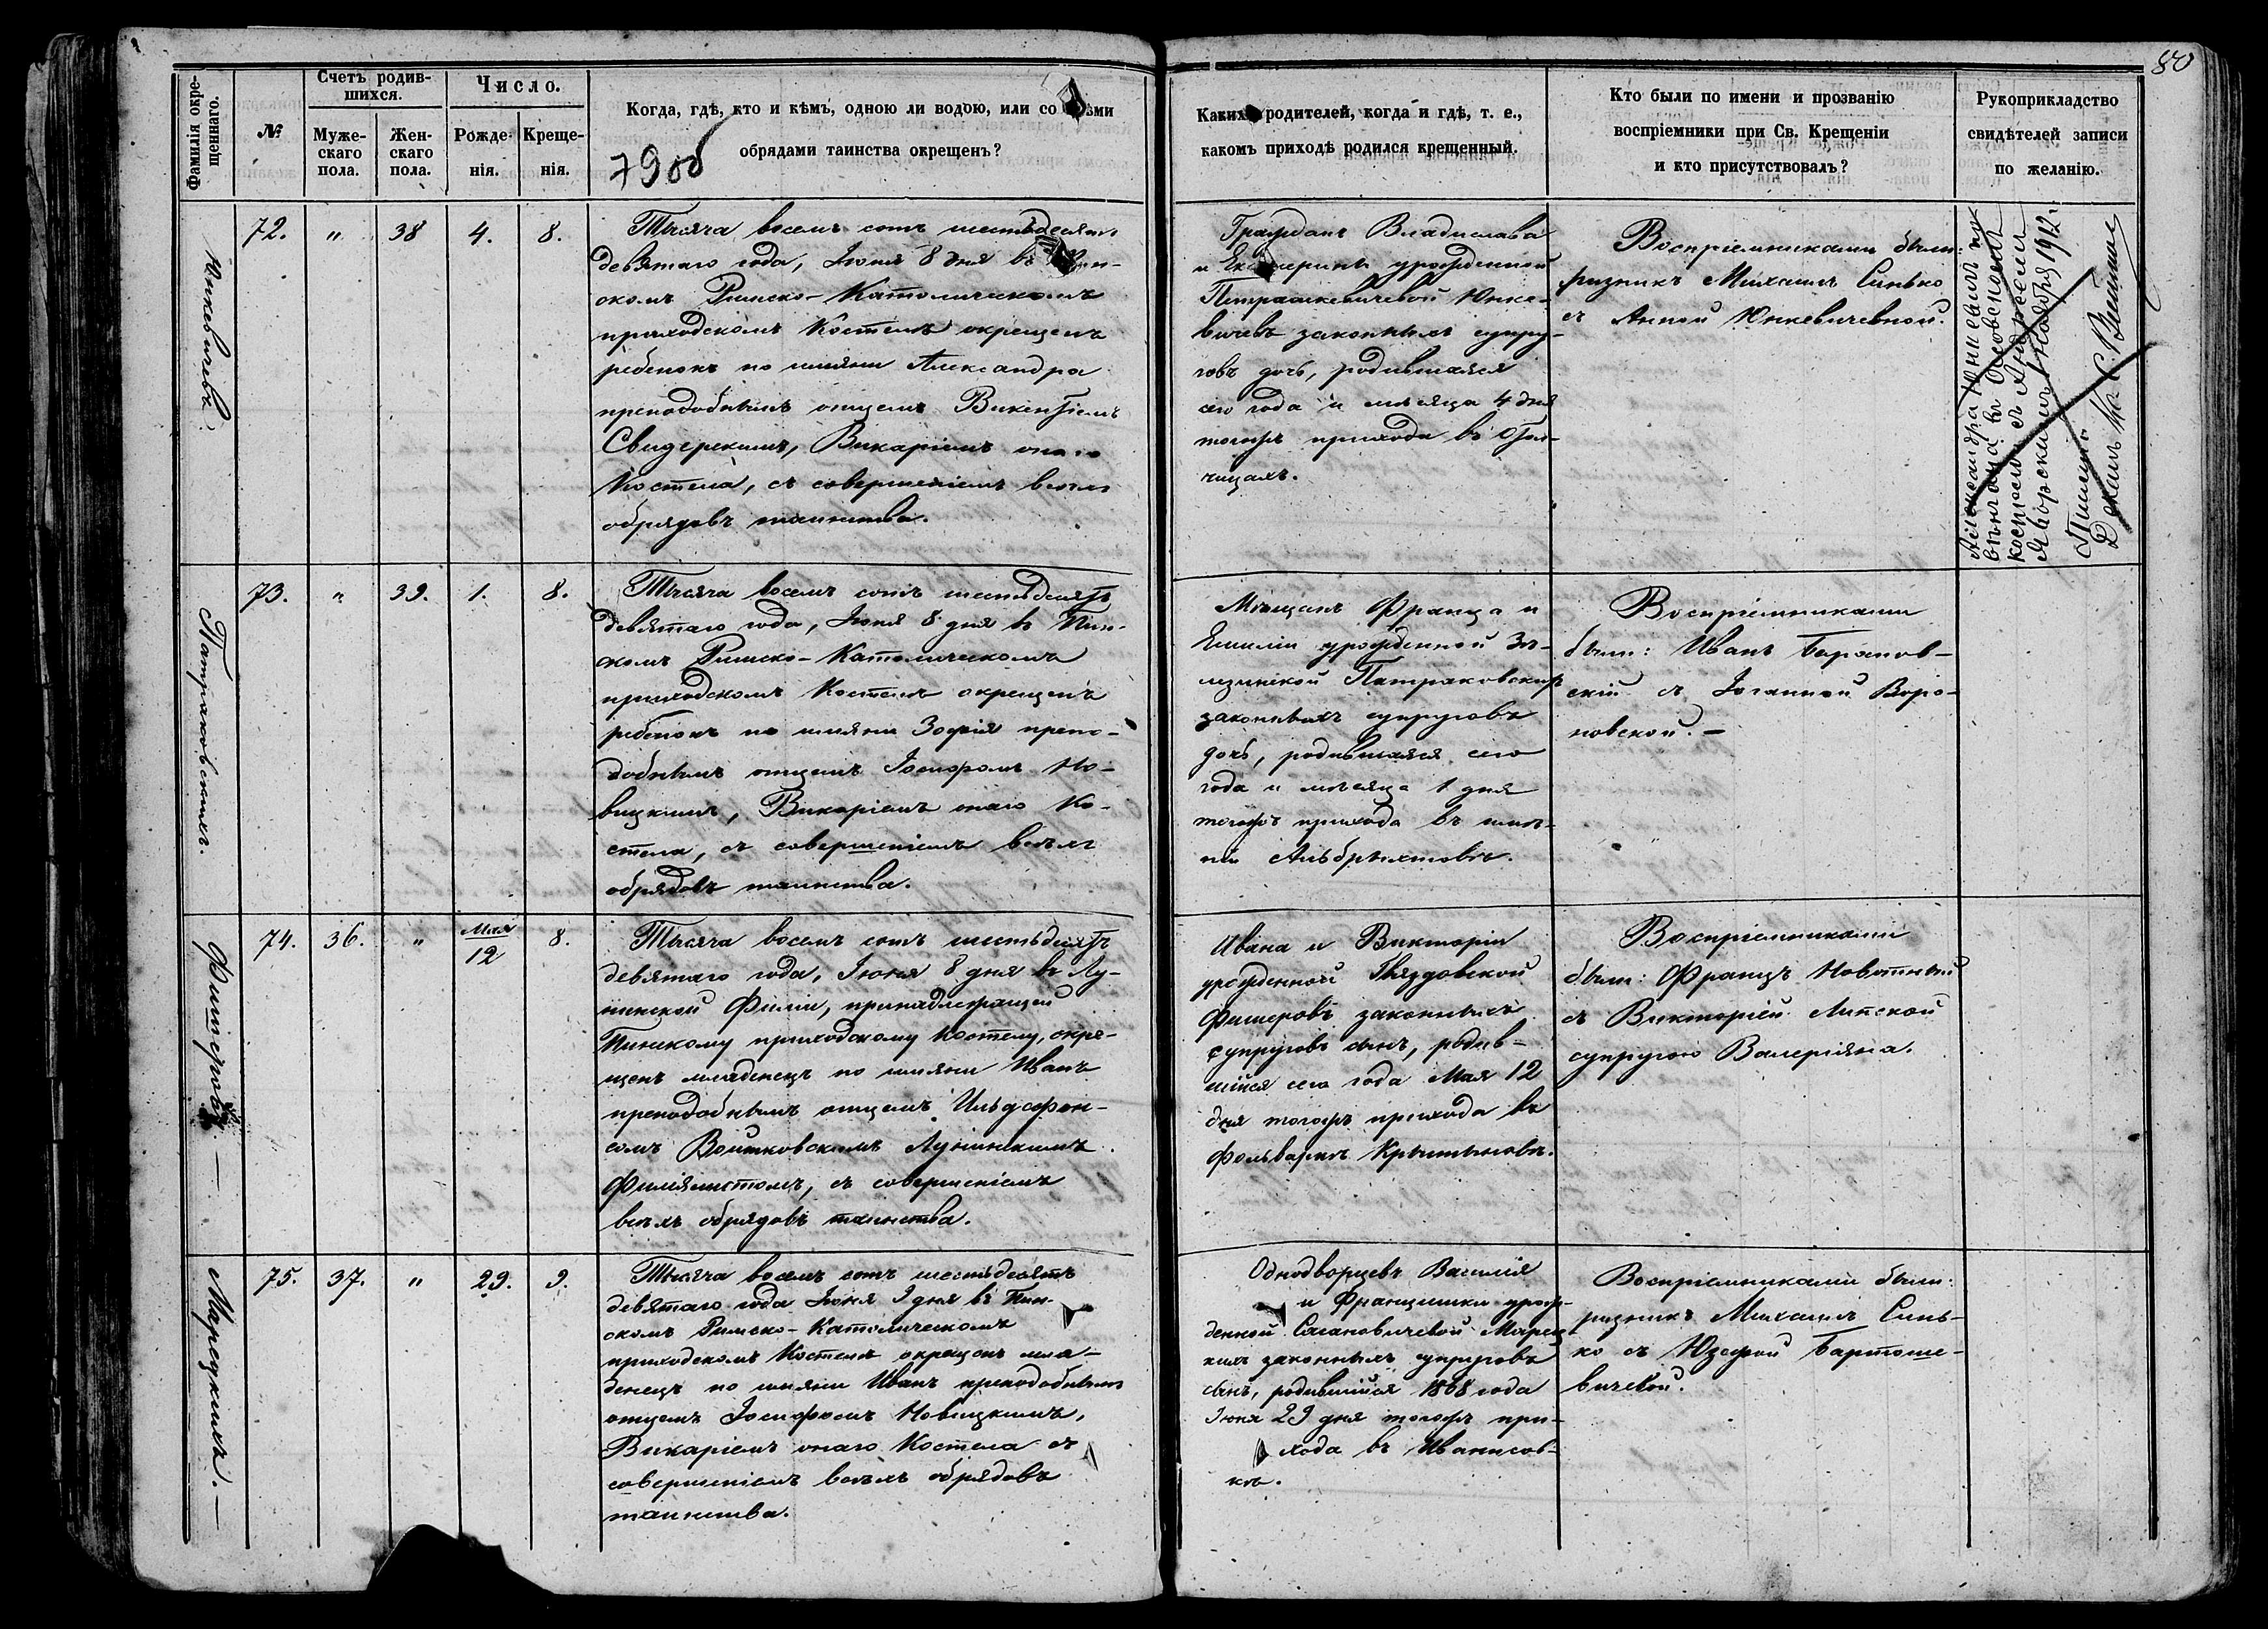 80
Фамилія окре-
щеннаго.
№
Счетъ родив-
шихся.
Муже-
скаго
пола.
Жен-
скаго
пола.
Число.
Рожде-
нія.
Креще-
нія.
Когда, гдѣ, кто и кѣмъ, одною ли водою, или со
обрядами таинства окрещенъ?
79об
Какихъ родителей, когда и гдѣ, т. е.,
какомъ приходѣ родился крещенный.
Кто были по имени и прозванію
воспріемники при Св. Крещеніи
и кто присутствовалъ?
Рукоприкладство
свидѣтелей записи
по желанію.
Юнкевичевъ.
72.
"
38
4.
8.
Тысяча восемь сотъ шестьдесятъ
девятаго года, Іюня 8 дня въ Пин-
скомъ Римско-Католическомъ
приходскомъ Костелѣ окрещенъ
ребенокъ по имяни Александра
преподобнымъ отцемъ Викентіемъ
Свидерскимъ, Викаріемъ онаго
Костела, съ совершеніемъ всѣхъ
обрядовъ таинства.
Гражданъ Владислава
и Екатерины урожденной
Петрашкевичевой Юнке-
вичевъ законныхъ супру-
говъ дочь, родившаяся
сего года и мѣсяца 4 дня
тогожъ прихода въ
чицахъ.
Воспріемниками были:
ризникъ Михаилъ Синько
съ Анной Юнкевичевной.
Александра
въ Осовскомъ
костелѣ съ Андреемъ
Яворскимъ Ноября 1912 г.
Пинскъ
Деканъ К. С.
Патраковскихъ.
73.
"
39.
1.
8.
Тысяча восемь сотъ шестьдесятъ
девятаго года, Іюня 8 дня въ Пин-
скомъ Римско-Католическомъ
приходскомъ Костелѣ окрещенъ
ребенокъ по имяни Зофія препо-
добнымъ отцемъ Іосифомъ Но-
вицкимъ, Викаріемъ онаго Ко-
стела, съ совершеніемъ всѣхъ
обрядовъ таинства.
Мѣщанъ Франца и
Емиліи урожденной Зе-
лезинской Патраковскихъ
законныхъ супруговъ
дочь, родившаяся сего
года и мѣсяца 1 дня
тогожъ прихода въ имѣ-
ніи Альбрыхтовѣ.
Воспріемниками
были: Иванъ Баранов-
скій съ Іоганной Воро-
новской.—
Фишеровъ. —
74.
36.
"
Мая
12
8.
Тысяча восемь сотъ шестьдесятъ
девятаго года, Іюня 8 дня въ Лу-
нинской Филіи, принадлежащей
Пинскому приходскому костелу, окре-
щенъ младенецъ по имяни Иванъ
преподобнымъ отцемъ Ильдефон-
сомъ Войтковскимъ Лунинскимъ
Филіялистомъ, съ совершеніемъ
всѣхъ обрядовъ таинства.
Ивана и Викторіи
урожденной Гвяздовской
Фишеровъ законныхъ
супруговъ сынъ, родив-
шійся сего года Мая 12
дня тогожъ прихода въ
фольваркѣ Крыштыновѣ.
Воспріемниками
были: Францъ Новотный
съ Викторіей Липской
супругою Валеріяна.
Марецкихъ. —
75.
37.
"
29.
9.
Тысяча восемь сотъ шестьдесятъ
девятаго года Іюня 9 дня въ Пин-
скомъ Римско-Католическомъ
приходскомъ Костелѣ окрещенъ мла-
денецъ по имяни Иванъ преподобнымъ
отцемъ Іосифомъ Новицкимъ,
Викаріемъ онаго Костела съ
совершеніемъ всѣхъ обрядовъ
таинства.
Однодворцевъ Василія
и Францишки урож-
денной Сасановичевой Марец-
кихъ законныхъ супруговъ
сынъ, родившійся 1868 года
Іюня 29 дня тогожъ при-
хода въ Иванисов-
кѣ.
Воспріемниками были:
ризникъ Михаилъ Синь-
ко съ Юзефой Бартоше-
вичевой.